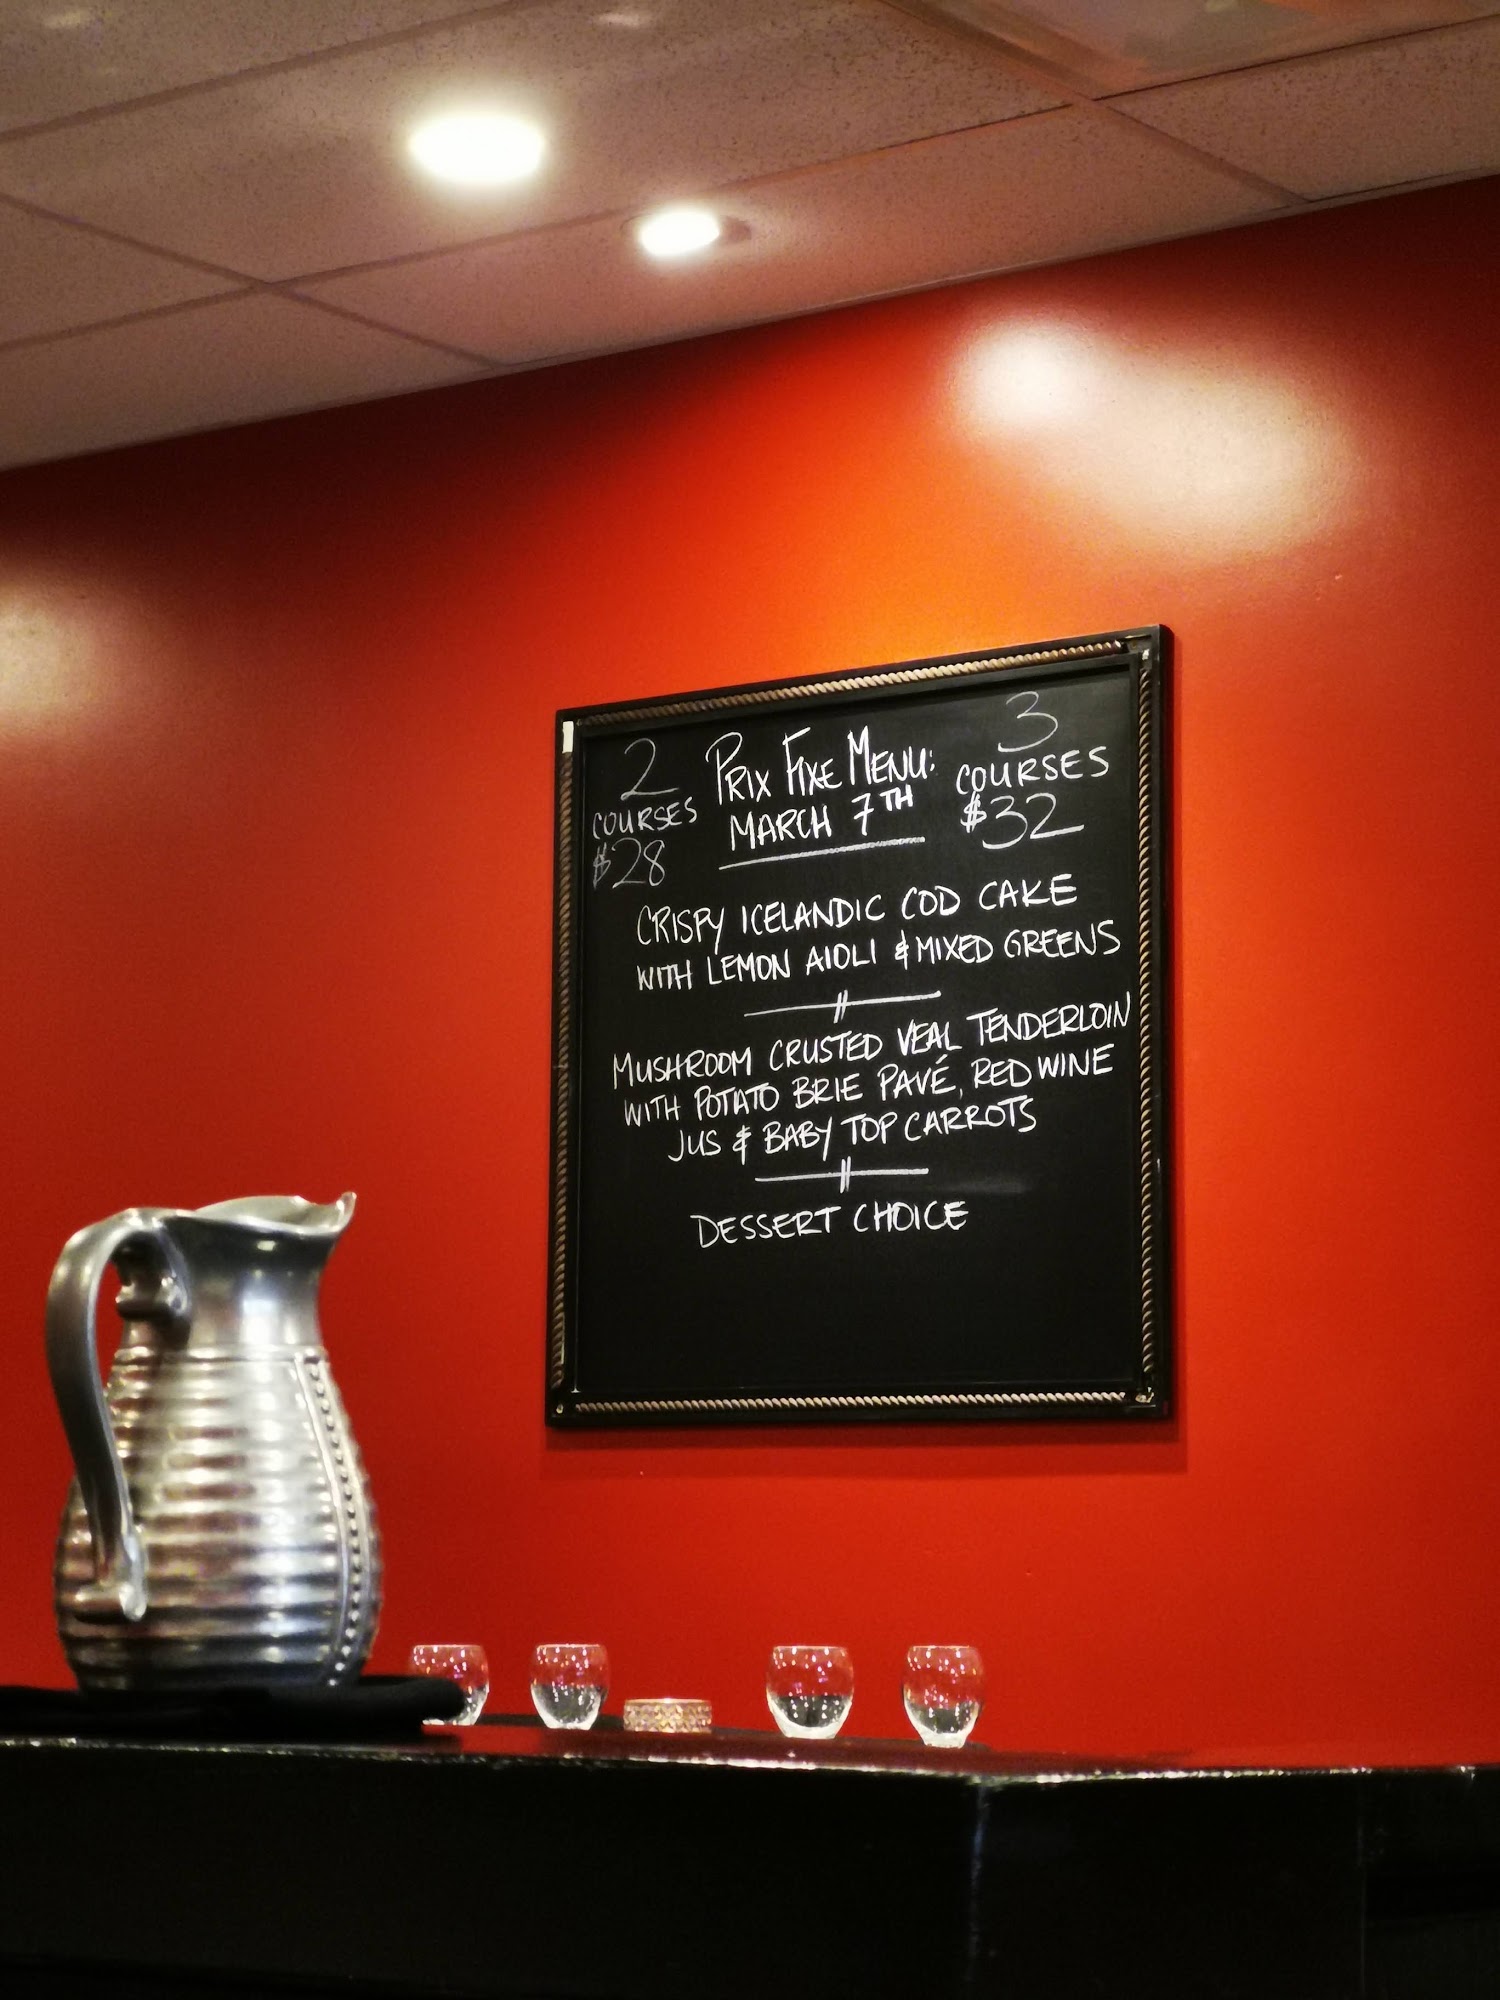 2
COURSES
$28
PRIX FIXE MENU:
MARCH 7TH
3
COURSES
$32
CRISPY ICELANDIC COD CAKE
WITH LEMON AIOLI & MIXED GREENS
MUSHROOM CRUSTED VEAL TENDERLOIN
WITH POTATO BRIE PAVÉ, RED WINE
JUS & BABY TOP CARROTS
DESSERT CHOICE